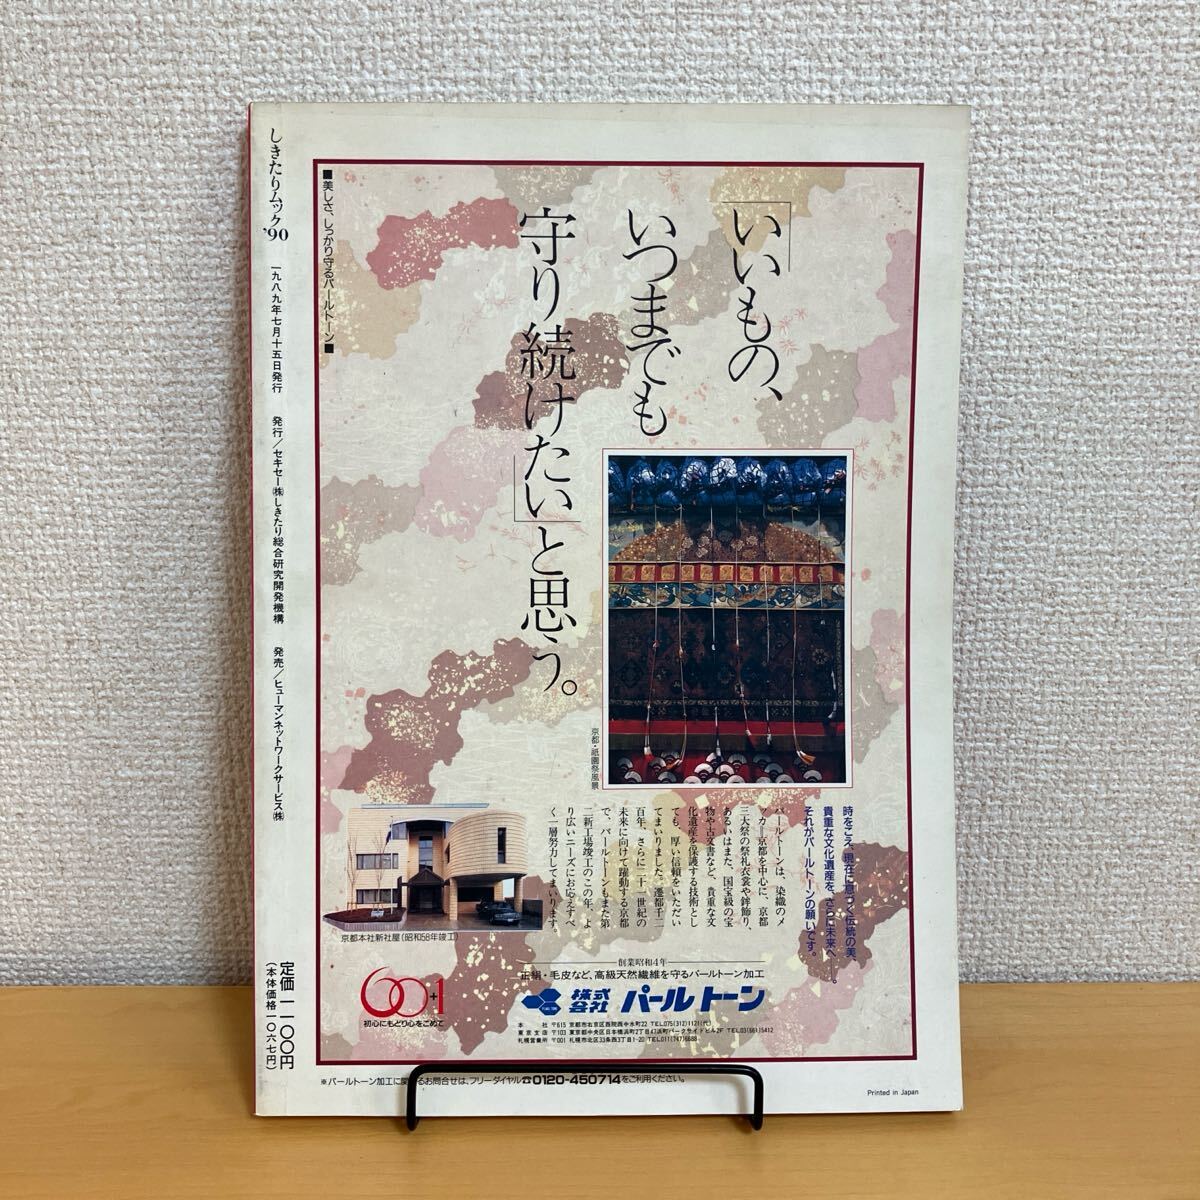 しきたりムック'90
一九八九年七月十五日発行
発行/セキセー㈱しきたり総合研究開発機構
発売/ヒューマンネットワークサービス㈱
定価一一〇〇円
(本体価格一〇六七円)
■美しさ、しっかり守るパールトーン■
「いいもの、
いつまでも
守り続けたい」と思う。
京都・祇園祭風景
時をこえ、現在に息づく伝統の美、
貴重な文化遺産を、さらに未来へ——。
それがパールトーンの願いです。
パールトーンは、染織のメ
ッカ=京都を中心に、京都
三大祭の祭礼衣裳や鉾飾り、
あるいはまた、国宝級の宝
物や古文書など、貴重な文
化遺産を保護する技術とし
ても、厚い信頼をいただい
てまいりました。遷都千二
百年、さらに二十一世紀の
未来に向けて躍動する京都
で、パールトーンもまた第
二新工場竣工のこの年、よ
り広いニーズにお応えすべ
く一層努力してまいります。
京都本社新社屋(昭和58年竣工)
60+1
初心にもどり心をこめて
創業昭和4年
正絹・毛皮など、高級天然繊維を守るパールトーン加工
株式会社 パールトーン
本社 〒615 京都市右京区西院西中水町22 TEL075(312)1121(代)
東京支店 〒103 東京都中央区日本橋浜町2丁目47浜町パークサイドビル2F TEL03(661)5412
札幌営業所 〒001 札幌市北区33条西3丁目1-20 TEL011(747)6688
※パールトーン加工に関するお問合せは、フリーダイヤル☎0120-450714をご利用ください。
Printed in Japan